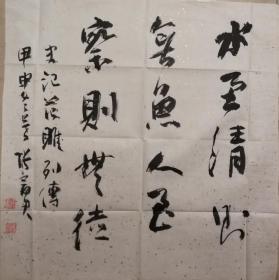 水至清则
無魚人至
察則無徒
史記范雎列傳
甲申冬